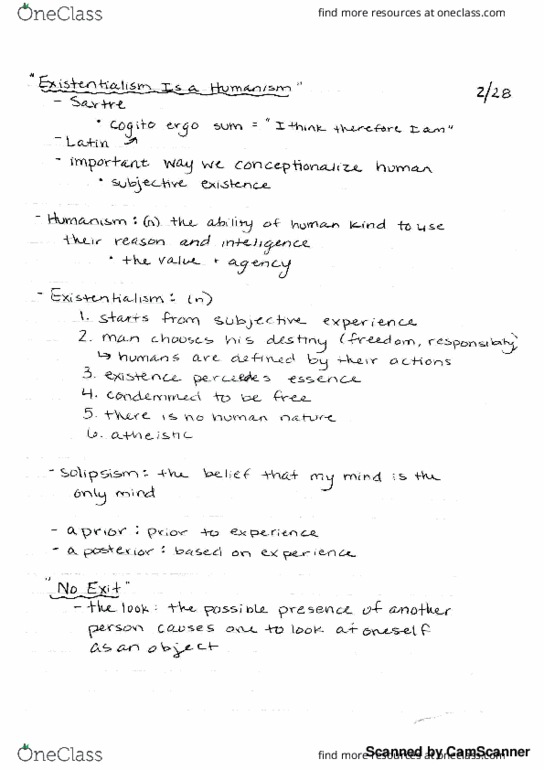 OneClass
find more resources at oneclass.com
"Existentialism Is a Humanism"
2/28
- Sartre
• cogito ergo sum = "I think therefore I am"
- Latin
- important way we conceptionalize human
• subjective existence
- Humanism: (n) the ability of human kind to use
their reason and inteligence
• the value + agency
- Existentialism: (n)
1. starts from subjective experience
2. man chooses his destiny (freedom, responsibility)
↳ humans are defined by their actions
3. existence percedes essence
4. condemmed to be free
5. there is no human nature
6. atheistic
- Solipsism: the belief that my mind is the
only mind
- a prior: prior to experience
- a posterior: based on experience
"No Exit"
- the look: the possible presence of another
person causes one to look at oneself
as an object
OneClass
find more resources at oneclass.com
Scanned by CamScanner